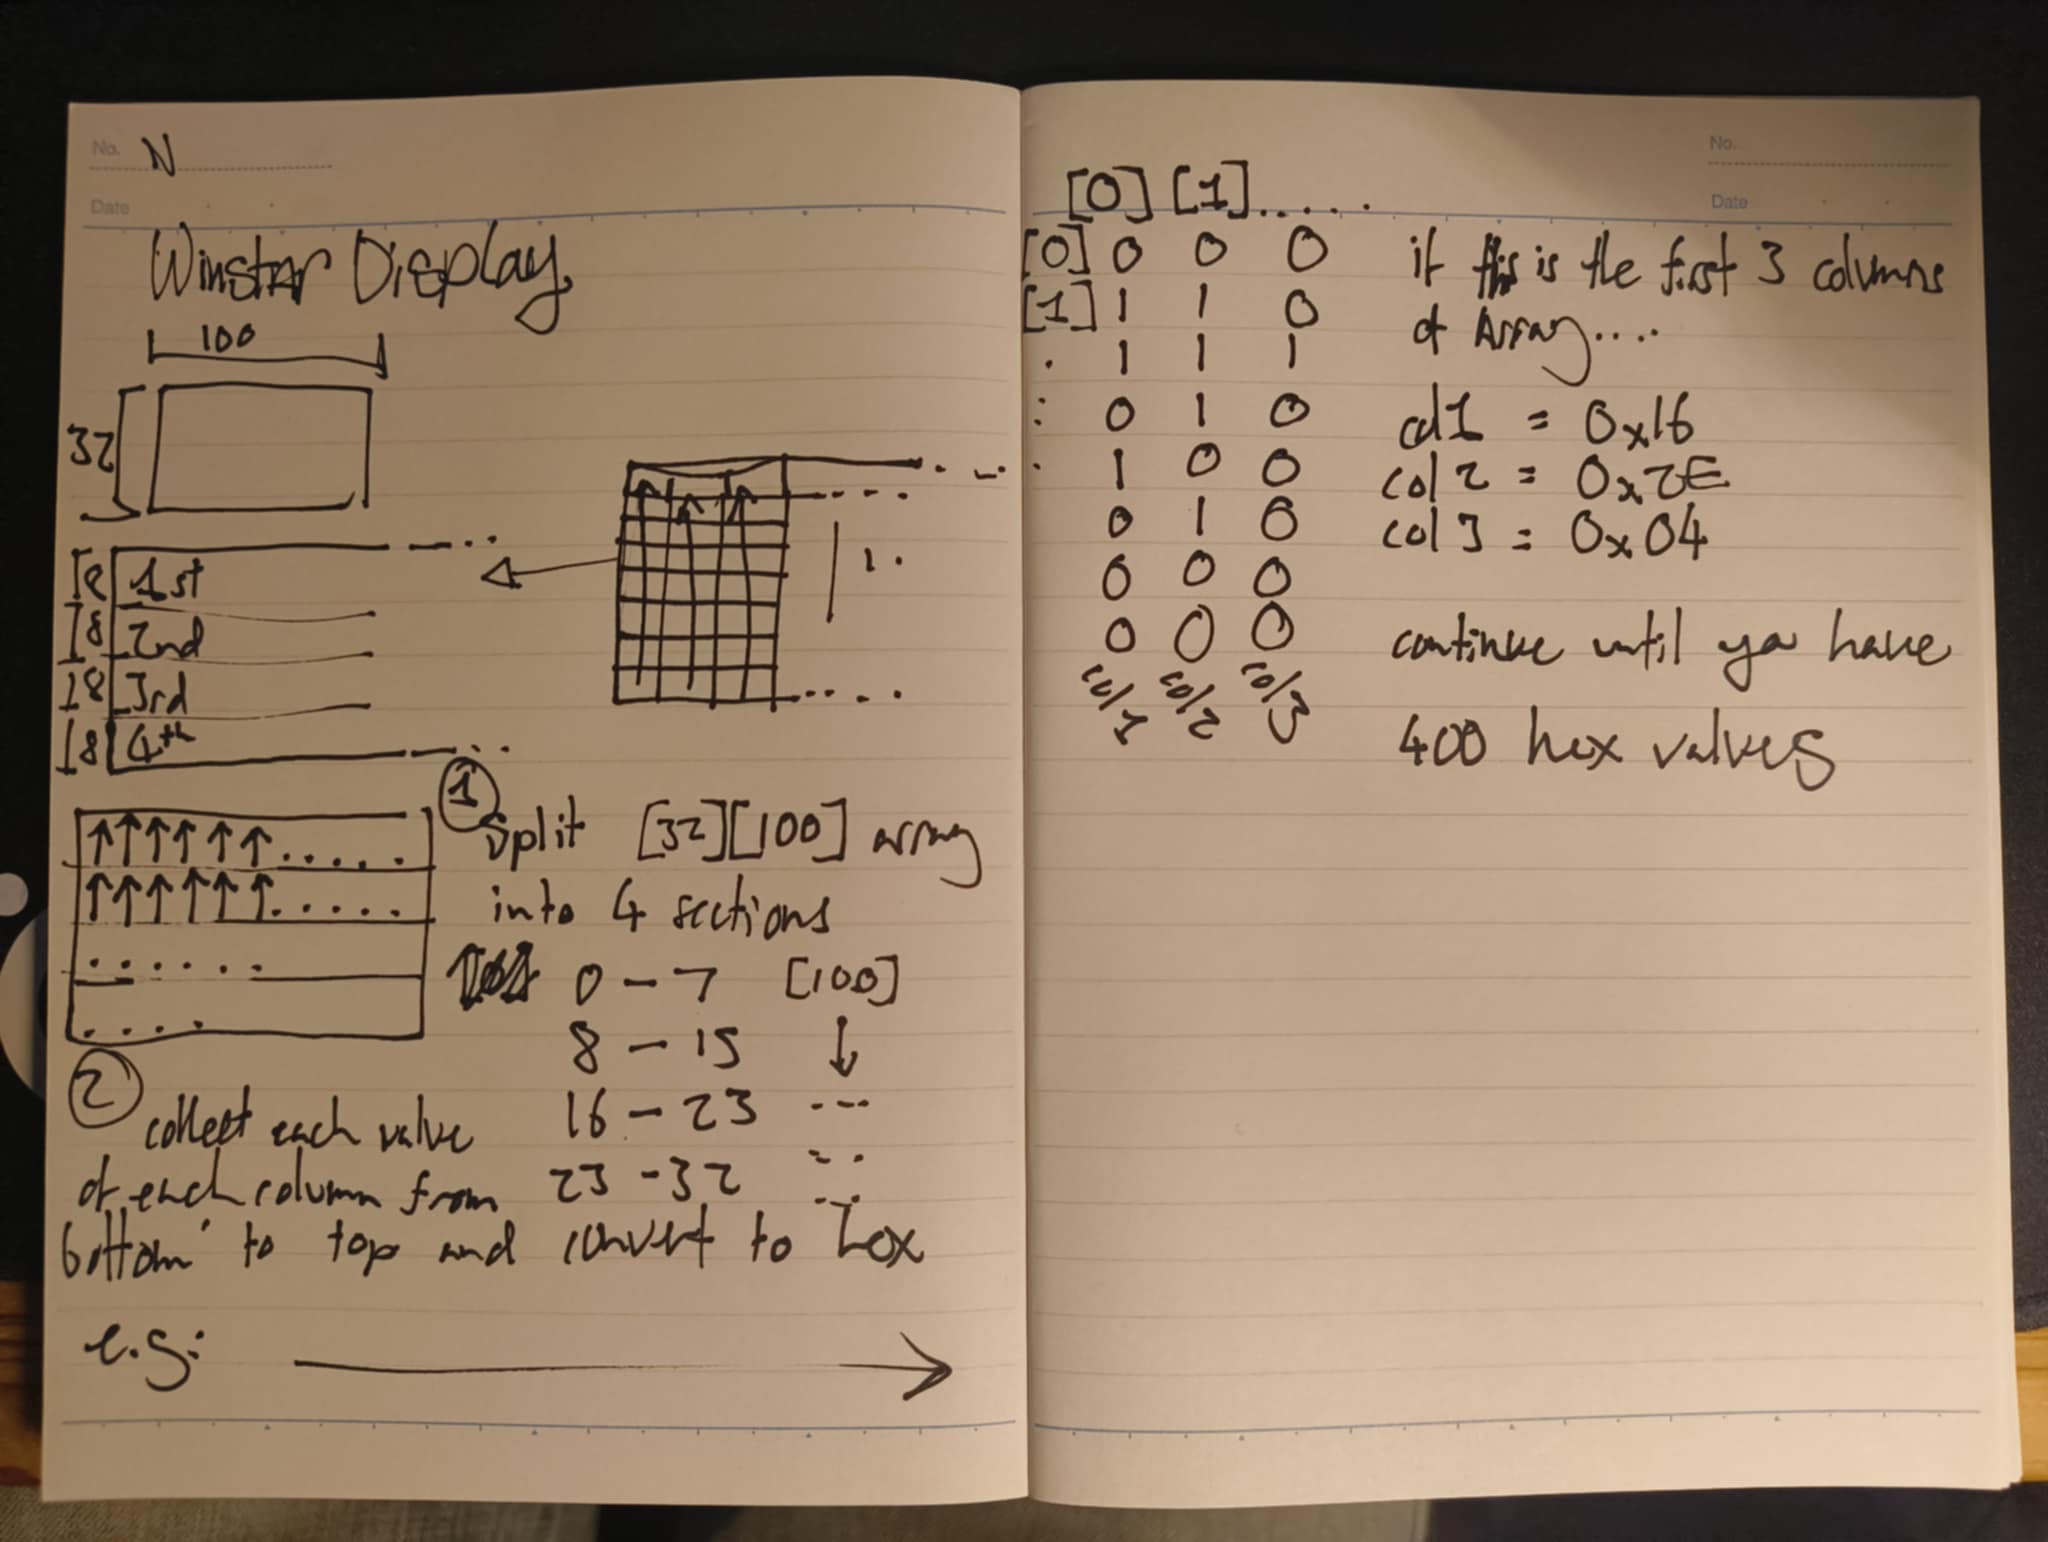 No. N
Date
Winstar Display
100
32
[8 1st
]8 2nd
]8 3rd
[8 4th
1
Split [32][100] array
into 4 sections
0 - 7 [100]
8 - 15 ↓
16 - 23 ---
23 - 32
2
collect each value
of each column from
bottom to top and convert to hex
e.g:
No.
Date
[0] [1].....
[0] 0 0 0
[1] 1 1 0
. 1 1 1
: 0 1 0
. 1 0 0
0 1 0
0 0 0
0 0 0
col1 col2 col3
if this is the first 3 columns
of Array....
col1 = 0x16
col2 = 0x2E
col3 = 0x04
continue until you have
400 hex values